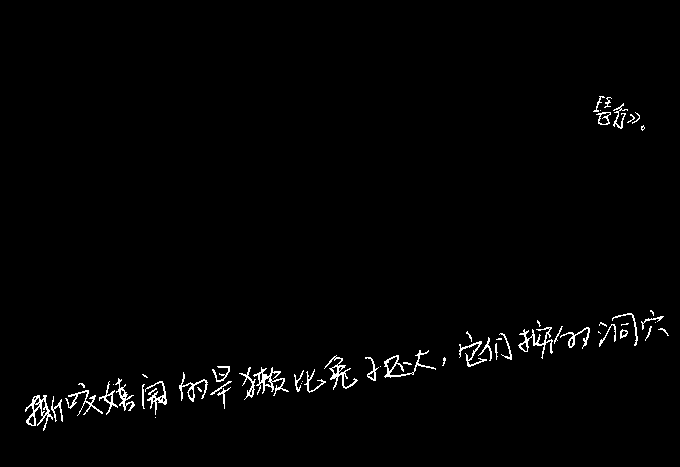 醫疗》。
撕咬嬉闹的旱獭比兔子还大,它们挖的洞穴